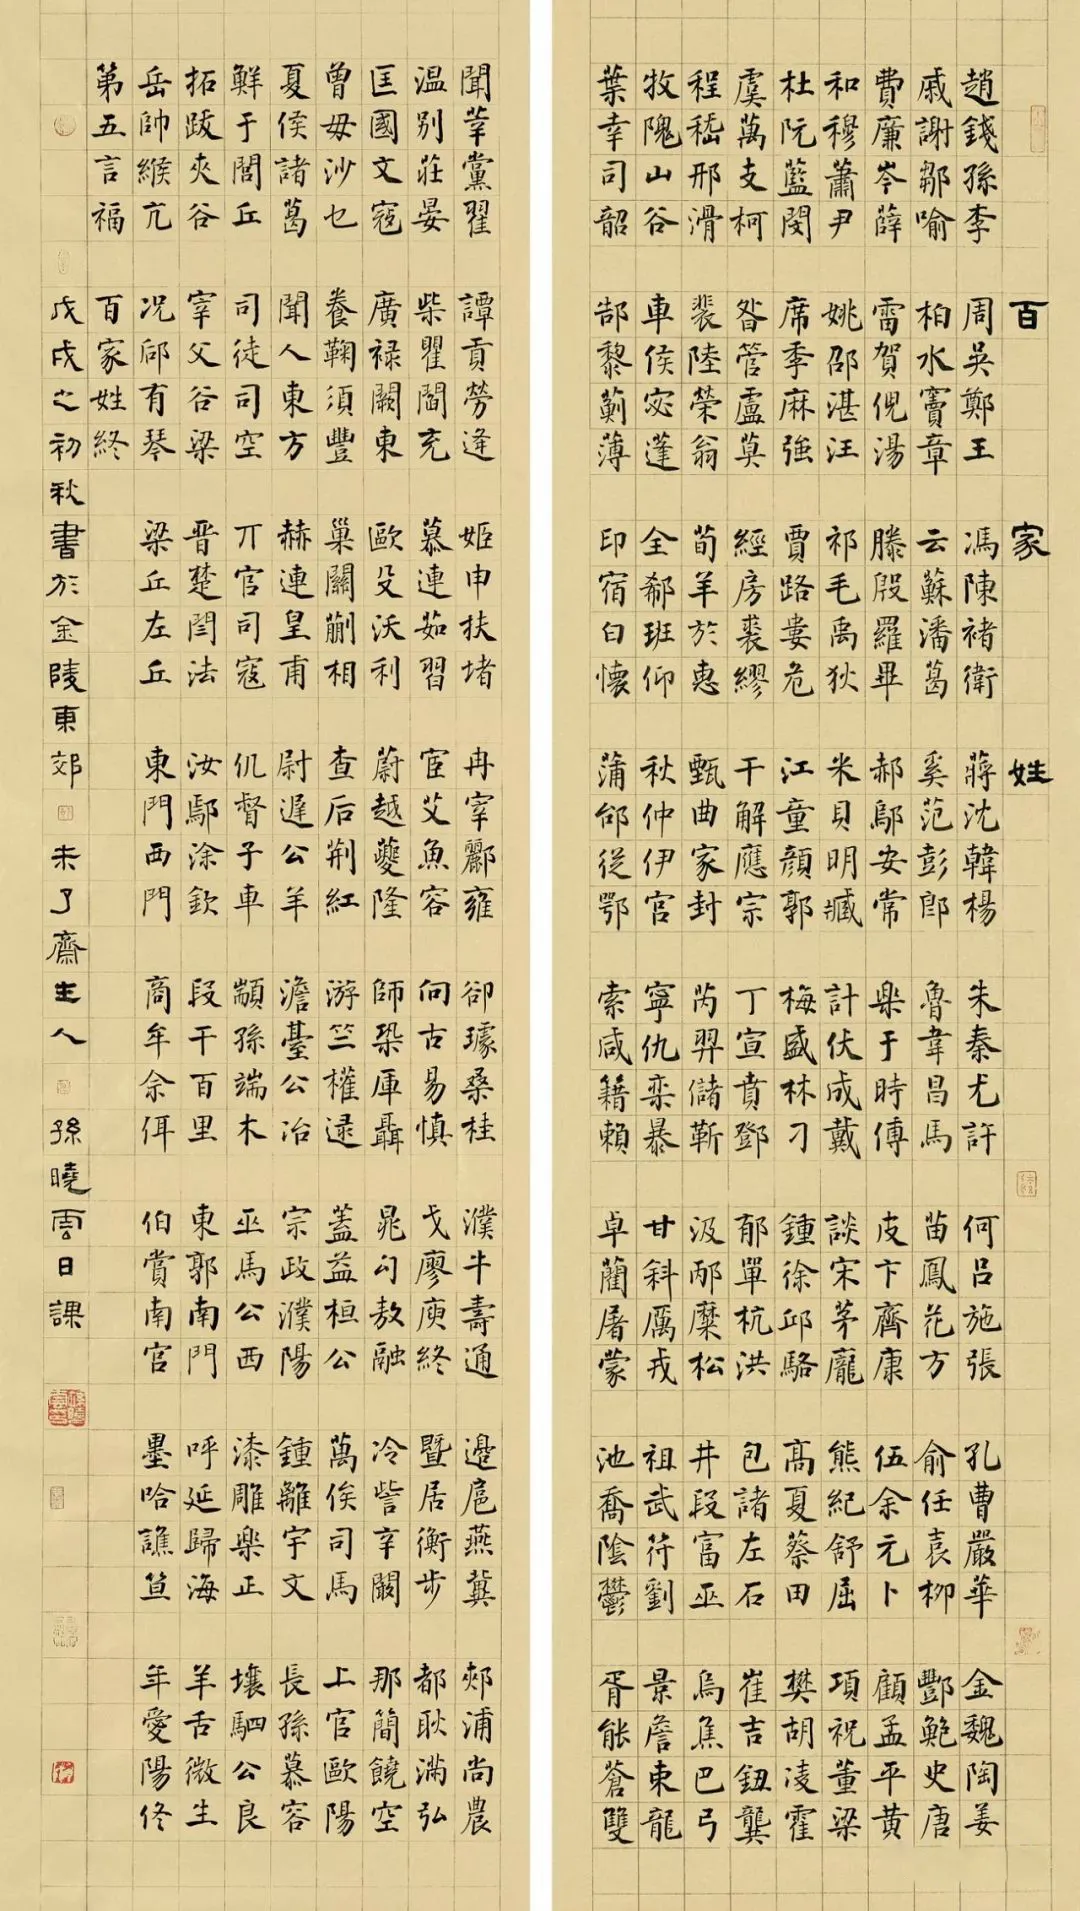 百家姓
趙錢孫李 周吳鄭王 馮陳褚衛 蔣沈韓楊 朱秦尤許 何呂施張 孔曹嚴華 金魏陶姜
戚謝鄒喻 柏水竇章 云蘇潘葛 奚范彭郎 魯韋昌馬 苗鳳花方 俞任袁柳 酆鮑史唐
費廉岑薛 雷賀倪湯 滕殷羅畢 郝鄔安常 樂于時傅 皮卞齊康 伍余元卜 顧孟平黃
和穆蕭尹 姚邵湛汪 祁毛禹狄 米貝明臧 計伏成戴 談宋茅龐 熊紀舒屈 項祝董梁
杜阮藍閔 席季麻強 賈路婁危 江童顏郭 梅盛林刁 鍾徐邱駱 高夏蔡田 樊胡凌霍
虞萬支柯 昝管盧莫 經房裘繆 干解應宗 丁宣賁鄧 郁單杭洪 包諸左石 崔吉鈕龔
程嵇邢滑 裴陸榮翁 荀羊於惠 甄曲家封 芮羿儲靳 汲邴糜松 井段富巫 烏焦巴弓
牧隗山谷 車侯宓蓬 全郗班仰 秋仲伊宮 寧仇栾暴 甘斜厲戎 祖武符劉 景詹束龍
葉幸司韶 郜黎薊薄 印宿白懷 蒲邰從鄂 索咸籍賴 卓藺屠蒙 池喬陰鬱 胥能蒼雙
聞莘黨翟 譚貢勞逄 姬申扶堵 冉宰酈雍 卻璩桑桂 濮牛壽通 邊扈燕冀 郟浦尚農
温別莊晏 柴瞿閻充 慕連茹習 宦艾魚容 向古易慎 戈廖庾終 暨居衡步 都耿滿弘
匡國文寇 廣禄闕東 歐殳沃利 蔚越夔隆 師鞏厙聶 晁勾敖融 冷訾辛闞 那簡饒空
曾毋沙乜 養鞠須豐 巢關蒯相 查后荆紅 游竺權逯 蓋益桓公 萬俟司馬 上官歐陽
夏侯諸葛 聞人東方 赫連皇甫 尉遲公羊 澹臺公冶 宗政濮陽 鍾離宇文 長孫慕容
鮮于閭丘 司徒司空 丌官司寇 仉督子車 顓孫端木 巫馬公西 漆雕樂正 壤駟公良
拓跋夾谷 宰父谷梁 晋楚閆法 汝鄢涂欽 段干百里 東郭南門 呼延歸海 羊舌微生
岳帥緱亢 况郈有琴 梁丘左丘 東門西門 商牟佘佴 伯賞南宮 墨哈譙笪 年愛陽佟
第五言福 百家姓終
戊戌之初秋書於金陵東郊 未了齋主人 孫曉雲日課